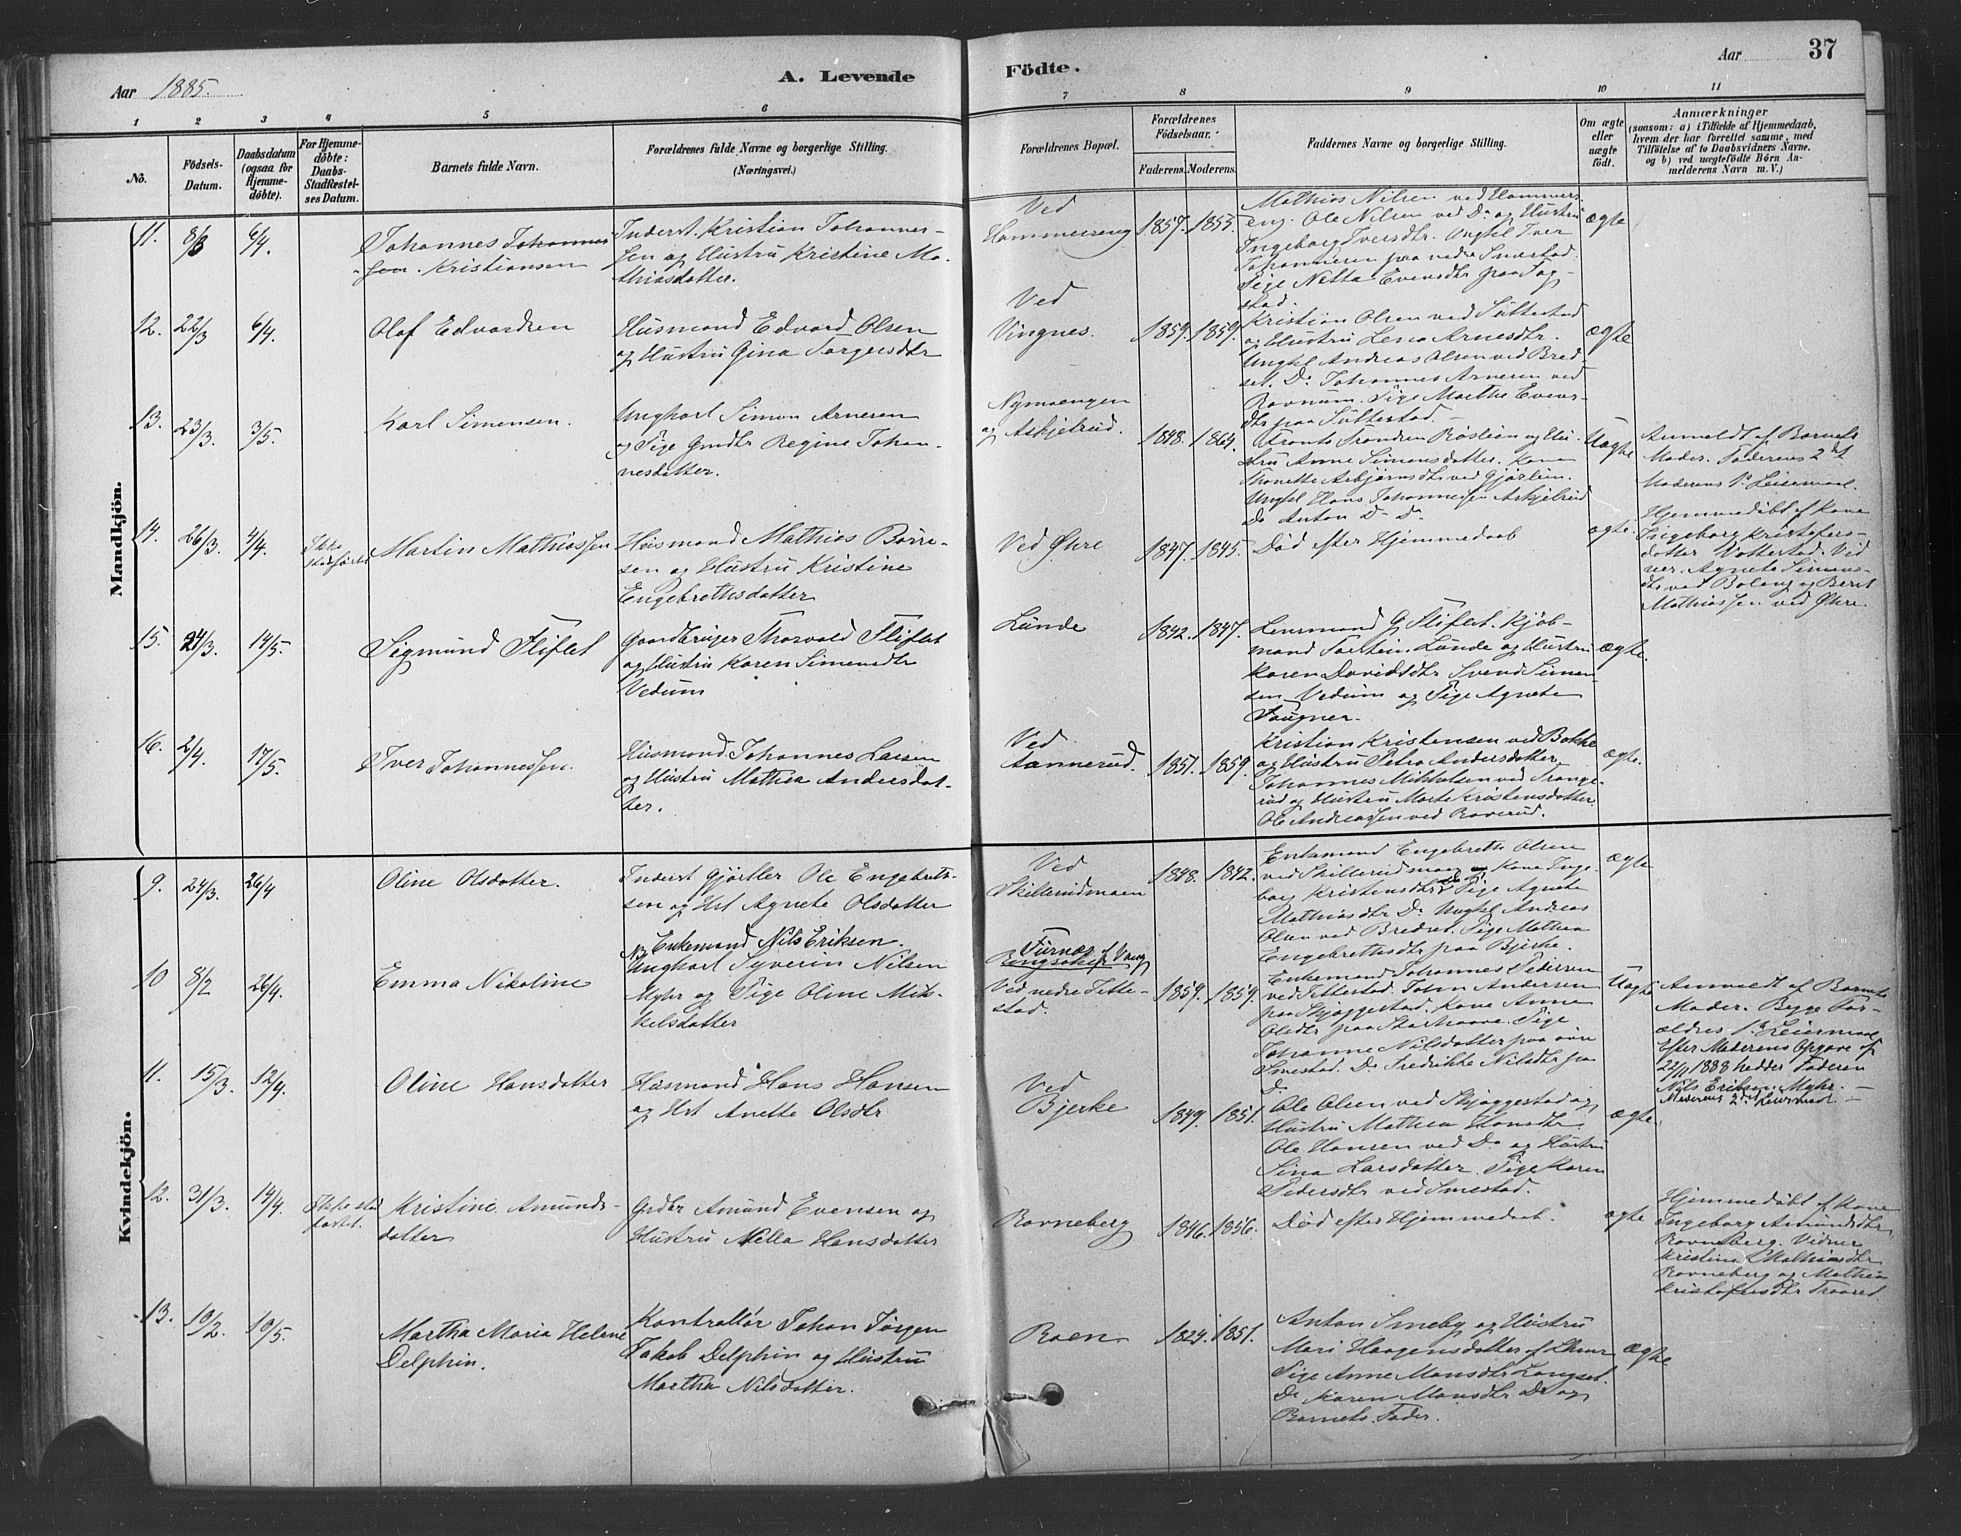 Aar 1885.
A. Levende
Födte.
Aar
37
1 2 3 4 5 6 7 8 9 10 11
No.
Födsels-
Datum.
Daabsdatum
(ogsaa for
Hjemme-
döbte).
For Hjemme-
döbte:
Daabs-
Stadfæstel-
ses Datum.
Barnets fulde Navn.
Forældrenes fulde Navne og borgerlige Stilling.
(Næringsvei.)
Forældrenes Bopæl.
Forældrenes
Födselsaar.
Faderens.
Moderens.
Faddernes Navne og borgerlige Stilling.
Om ægte
eller
uægte
födt.
Anmærkninger
(saasom: a) i Tilfælde af Hjemmedaab,
hvem der har forrettet samme, med
Tilföielse af to Daabsvidners Navne.
og b) ved uægtefödte Börn An-
melderens Navn m. V.)
Mandkjön.
11. 8/3 6/4.
Johannes Johannes
sen. Kristiansen
Inderst. Kristian Johannes-
sen og Hustru Kristine Ma-
thiasdatter.
Ved
Hammerseng
1857. 1853.
Mathias Nilsen ved Hammers-
eng. Ole Nilsen ved Do og Hustru
Ingeborg Iversdtr. Ungkl Iver
Johannesen paa nedre Smestad
Pige Netta Evensdtr paa Fog-
stad.
ægte
12. 22/3 6/4.
Olaf Edvardsen
Husmand Edvard Olsen
og Hustru Gina Torgersdtr
Ved
Vingnes.
1859. 1859.
Kristian Olsen ved Suttestad
og Hustru Lena Arnesdtr.
Ungkl Andreas Olsen ved Bred-
set. Do Johannes Arnesen ved
Rovnum. Pige Marthe Evens-
dtr paa Suttestad.
ægte
13. 23/3. 3/5.
Karl Simensen.
Ungkarl Simon Arnesen
og Pige Gmdtr Regine Johan-
nesdatter.
Nymoengen
og Askjelrud.
1848. 1864.
og Hu-
stru Anne Simensdatter. Kone
Thonette Asbjørnsdtr ved
Ungkl Hans Johannessen Askjelrud
Do Anton Do Do
Uægte
Anmeldt af Barnets
Moder. Faderens 2det
Moderens 1ste Leiermaal.
14. 26/3. 4/4.
Ikke
stadfæstet
Martin Mathiassen
Husmand Mathias Børre-
sen og Hustru Kristine
Engebrethsdatter
Ved Øhre
1847. 1845.
Død efter Hjemmedaab
ægte.
Hjemmedøbt af Kone
Ingeborg Kristofers-
datter Vottestad. Vid
ner. Agnete Simens-
dtr ved Boleng og Berit
Mathiassen ved Øhre
15. 24/3. 14/5.
Sigmund Fliflet
Gaardbruger Thorvald Fliflet
og Hustru Karen Simensdtr
Vedum
Lunde
1842. 1847.
Lensmand G Fliflet. Kjøb-
mand Torstein Lunde og Hustru
Karen Davidsdtr Svend Simen
sen Vedum og Pige Agnete
Fougner.
ægte.
16. 2/4. 17/5.
Iver Johannessen.
Husmand Johannes Larsen
og Hustru Mathea Andersdat-
ter.
Ved
Aannerud.
1851. 1859.
Kristian Kristensen ved Bakke
og Hustru Petra Andersdatter
Johannes Mikkelsen ved Trange-
rud og Hustru Marte Kristensdatter
Ole Andreassen ved Roverud.
ægte.
Kvindekjön.
9. 24/3. 26/4
Oline Olsdatter.
Inderst Gjørtler Ole Engebrets-
sen og Hst Agnete Olsdatter
Ved
Skillerudmoen
1848. 1842.
Enkemand Engebreth Olsen
ved Skillerudmoen og Kone Inge-
borg Kristensdtr Do Pige Agnete
Mathiasdtr Do Ungkl Andreas
Olsen ved Bredset. Pige Mathea
Engebrethsdtr paa Bjerke.
ægte
10 8/2 26/4.
Emma Nikoline
NB Enkemand Nils Eriksen.
Ungkarl Syverin Nilsen
Myhr og Pige Oline Mik-
kelsdatter
Furnæs af Vang
Ringsaker
Ved nedre Fitte-
stad.
1859. 1859.
Enkemand Johannes Pedersen
ved Fittestad. John Andersen
paa Skjøggestad. Kone Anne
Olesdtr paa Storhaave. Pige
Johanne Nilsdatter paa øvre
Smestad. Do Fredrikke Nilsdtr paa
Do
Uægte
Anmeldt af Barnets
Moder. Begge For-
ældres 1ste Leiermaal
Efter Moderens Opgave af
22/11 1888 hedder Faderen
Nils Eriksen Myhr. —
Moderens 2det Leiermaal. —
11. 15/3. 12/4.
Oline Hansdatter
Husmand Hans Hansen
og Hst Anette Olsdtr
Ved
Bjerke
1849. 1851.
Ole Olsen ved Skjøggestad og
Hustru Mathea Hansdtr
Ole Hansen ved Do og Hustru
Sina Larsdatter. Pige Karen
Pedersdtr ved Smestad.
ægte.
12. 31/3. 14/4.
Ikke stad
fæstet.
Kristine Amunds-
datter
Grdbr Amund Evensen og
Hustru Mella Hansdatter
Rovneberg
1846. 1856.
Død efter Hjemmedaab.
ægte
Hjemmedøbt af Kone
Ingeborg Amundsdtr
Rovneberg. Vidner
Kristine Mathiasdtr
Rovneberg og Mathea
Kristofersdtr
13. 19/2. 10/5.
Martha Maria Helene
Delphin.
Kontrollør Johan Jørgen
Jakob Delphin og Hustru
Martha Nilsdatter.
Roen
1824. 1851.
Anton Smeby og Hustru
Mari Haagensdatter af Lhmr
Pige Anne Mansdtr Langset.
Do Karen Mansdtr Do og
Barnets Fader.
ægte